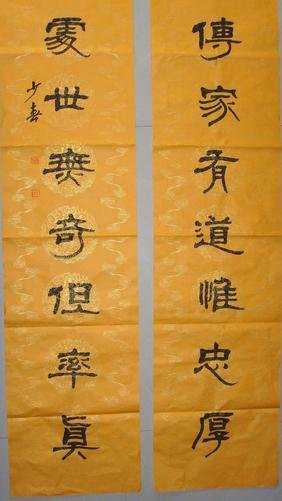 傳家有道惟忠厚
處世無奇但率真
少春